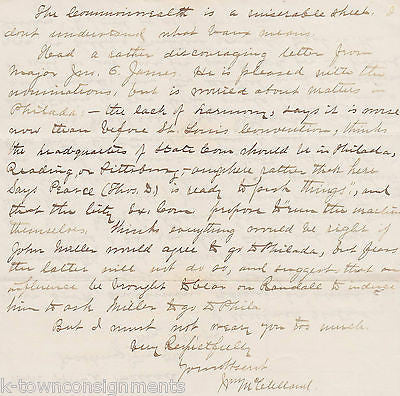 The Commonwealth is a miserable sheet. I
dont understand what Vaux means.
Had a rather discouraging letter from
Major Jno. E. James. He is pleased with the
nominations, but is worried about matters in
Philada, - the lack of harmony, says it is worse
now than before St. Louis Convention, thinks
the headquarters of State Com should be in Philada,
Reading or Pittsburg - anywhere rather than here
Says Pearce (Thos. D.) is ready to "fork things", and
that the City Ex. Com. propose to "run the machine
themselves. Thinks everything would be right if
John Miller would agree to go to Philada, but fears
the latter will not do so, and suggest that an
influence be brought to bear on Randall to induce
him to ask Miller to go to Phila
But I must not weary you too much.
Very Respectfully
Your obt servt
Wm McClelland.
k-townconsignments